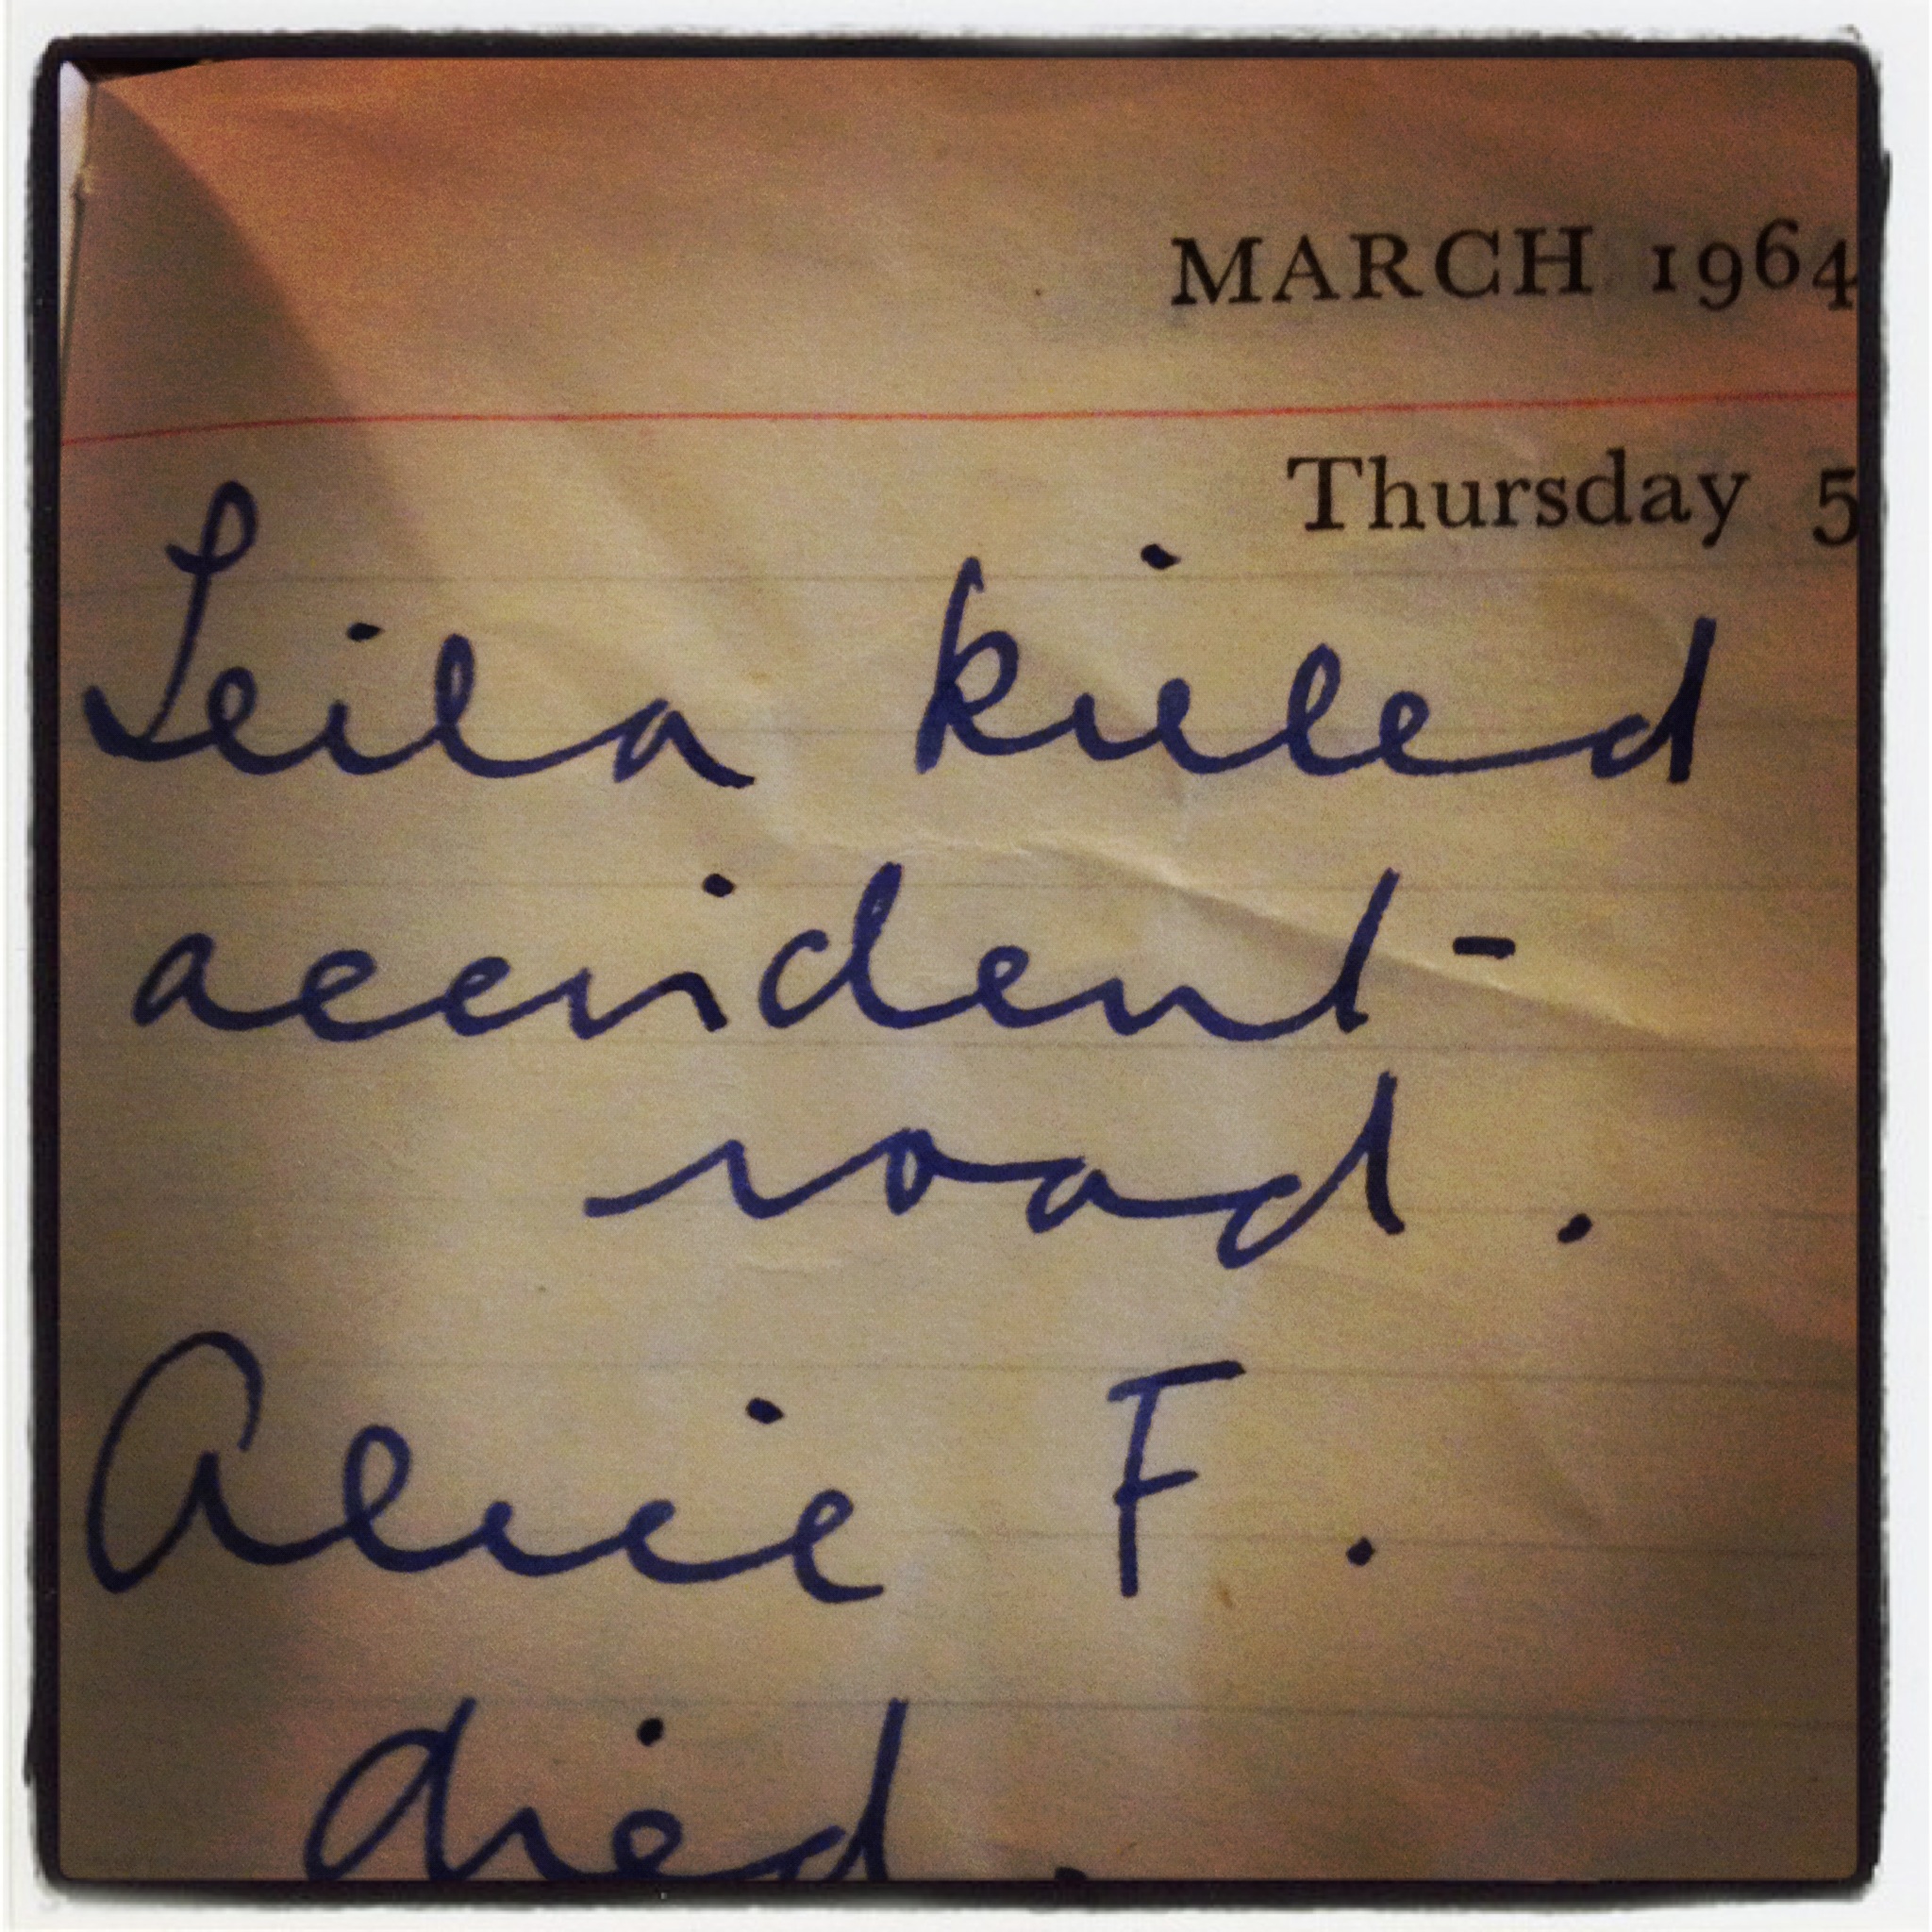 MARCH 1964
Thursday 5
Leila killed
accident -
road.
Alice F.
died.